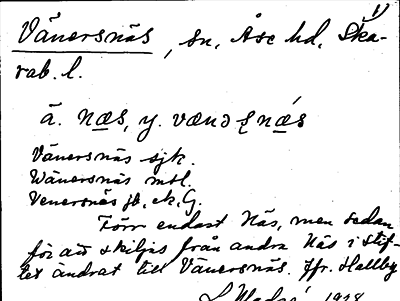 1)
Vänersnäs, sn, Åse hd, Ska-
rab. l.
ä. næs, y. vænə næ´s
Vänersnäs sjk.
Wänersnäs mtl.
Venersnäs jb, ek, G.
Förr endast Näs, men sedan
för att skiljas från andra Näs i Stif-
tet ändrat till Vänersnäs. Jfr. Hallby
1918